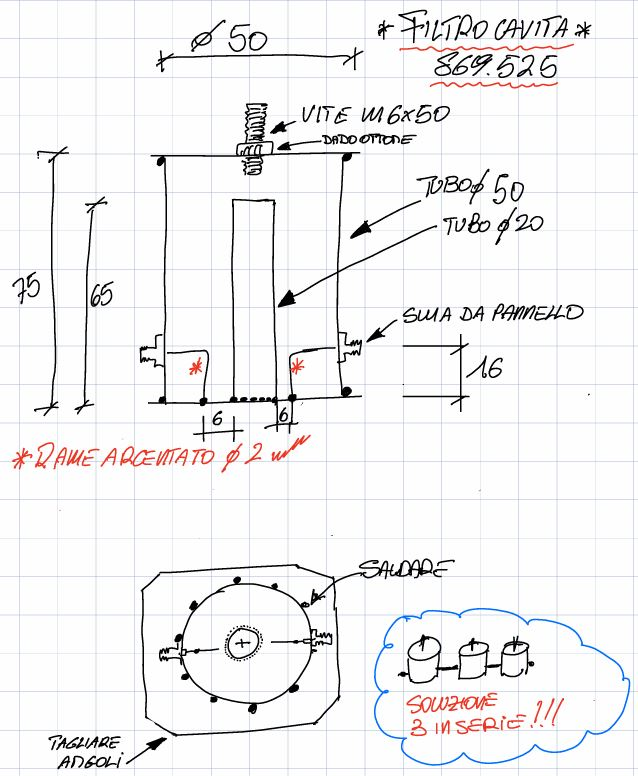 * FILTRO CAVITA *
869.525
Ø 50
VITE M6x50
DADO OTTONE
TUBO Ø 50
TUBO Ø 20
75
65
SMA DA PANNELLO
16
6
6
* RAME ARGENTATO Ø 2 mm
SALDARE
SOLUZIONE
3 IN SERIE!!!
TAGLIARE
ANGOLI